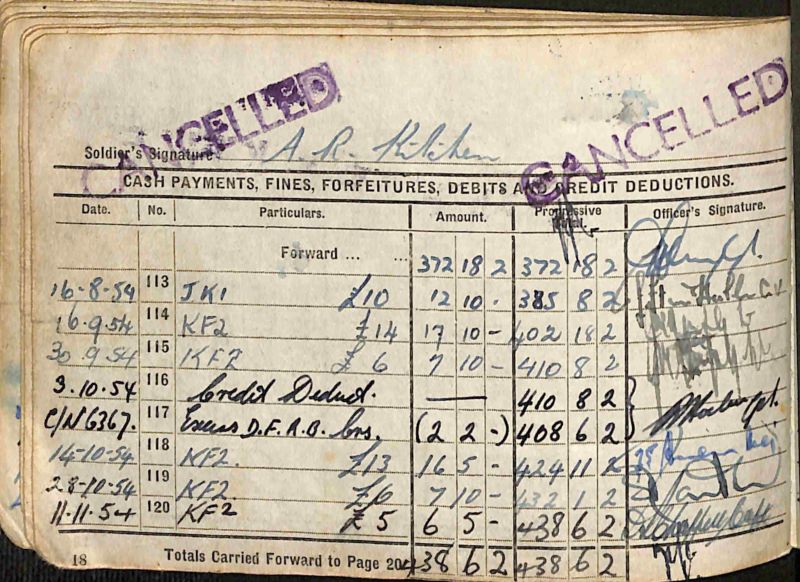 CANCELLED
CANCELLED
Soldier's Signature A. R. Kitchen
CASH PAYMENTS, FINES, FORFEITURES, DEBITS AND CREDIT DEDUCTIONS.
Date. No. Particulars. Amount. Progressive Total. Officer's Signature.
Forward ... ... 372 18 2 372 18 2
16-8-54 113 JK1 £10 12 10 - 385 8 2
16.9.54 114 KF2 £14 17 10 - 402 18 2
30.9.54 115 KF2 £ 6 7 10 - 410 8 2
3.10.54 116 Credit Deduct. — 410 8 2
C/N 6367. 117 Excess D.F.A.B. Crs. (2 2 -) 408 6 2
14-10-54 118 KF2. £13 16 5 - 424 11 2
28-10-54 119 KF2 £6 7 10 - 432 1 2
11.11.54 120 KF2 £5 6 5 - 438 6 2
18 Totals Carried Forward to Page 20 438 6 2 438 6 2